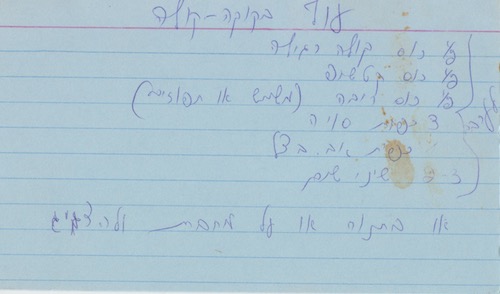 עוף בקוקה-קולה
½ כוס קולה רגילה
½ כוס קטשופ
½ כוס ריבה (משמש או תפוזים)
לערבב
2 כפות סויה
כפית אב. בצל
2-3 שיני שום
או בתנור או על מחבת